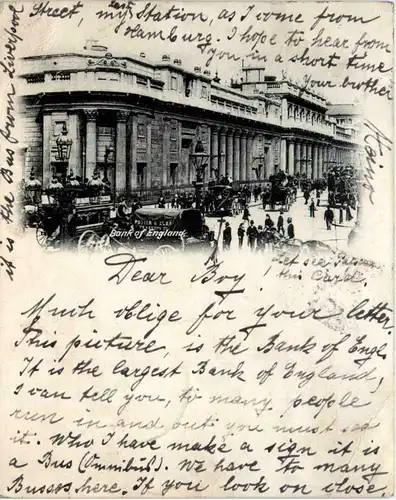 Bank of England.
Dear Boy!
Let see
this Card.
Much oblige for your letter.
This picture, is the Bank of Engl.
It is the largest Bank of England,
I can tell you, to many people
run in and out you must see
it. Who I have make a sign it is
a Bus (Omnibus). We have to many
Busses here. If you look on close,
it is the Bus from Liverpool
Street, my Station, as I come from
Hamburg. I hope to hear from
you in a short time
Your brother